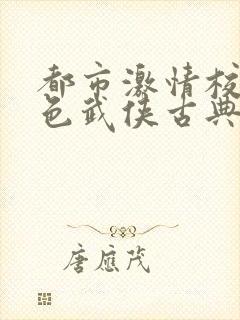 都市激情校
色武侠古典
唐应茂